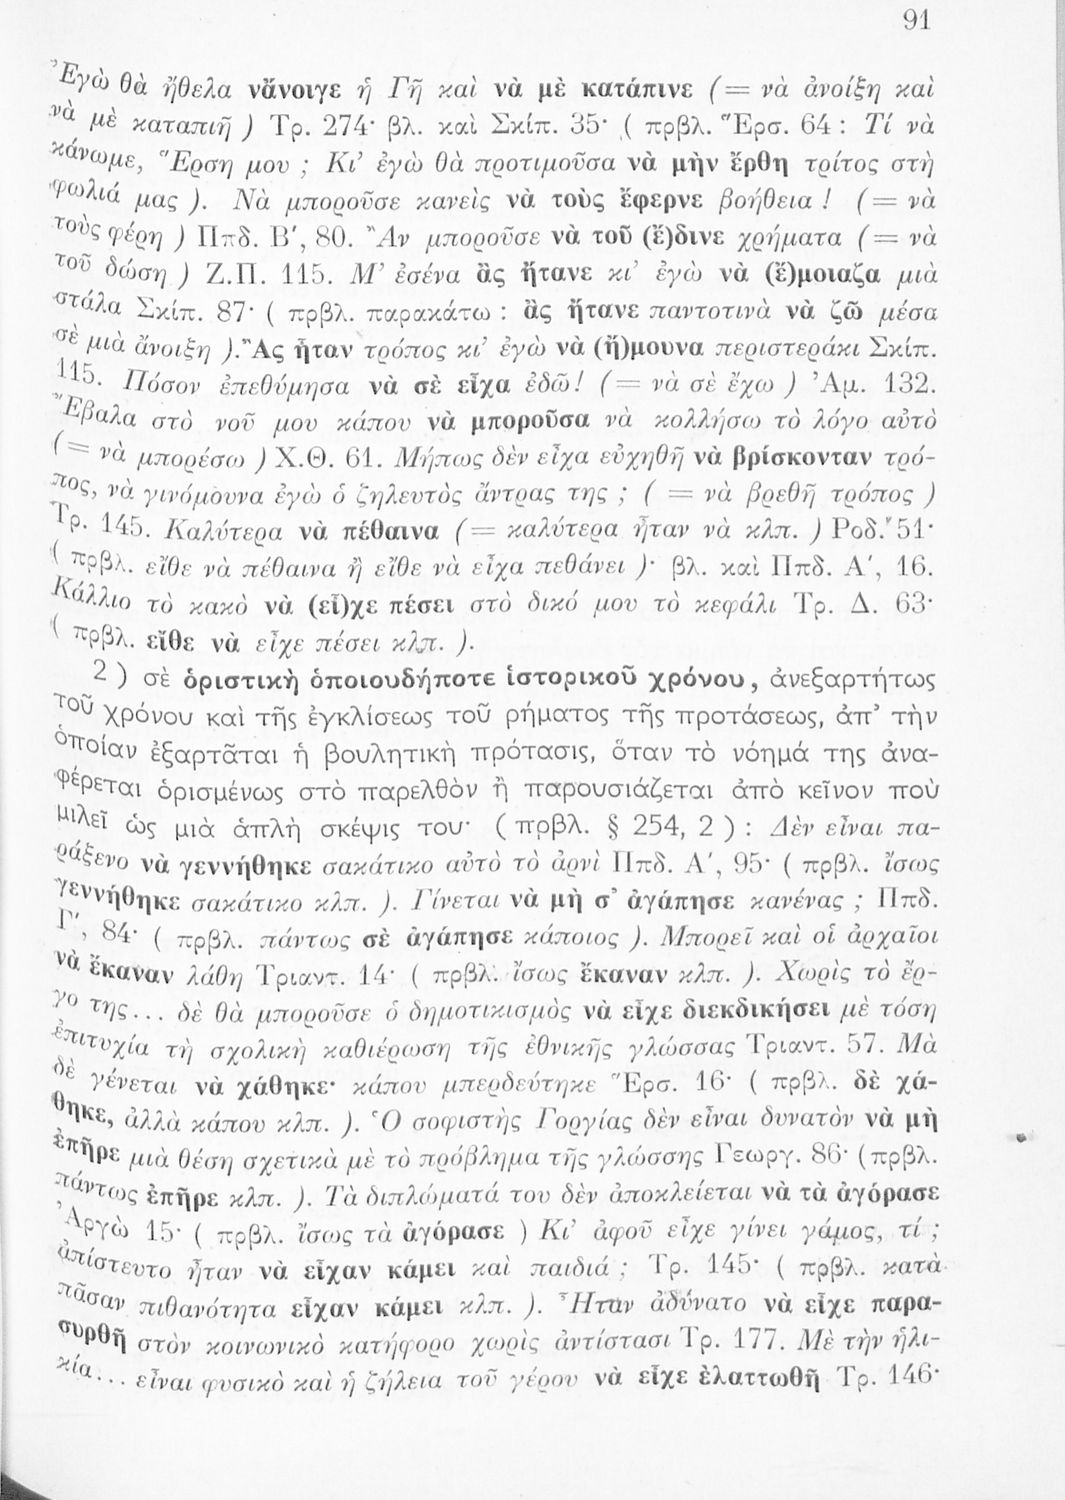 91
Ἐγὼ θὰ ἤθελα νἄνοιγε ἡ Γῆ καὶ νὰ μὲ κατάπινε (= νὰ ἀνοίξη καὶ
νὰ μὲ καταπιῆ ) Τρ. 274· βλ. καὶ Σκίπ. 35· ( πρβλ. Ἔρσ. 64 : Τί νὰ
κάνωμε, Ἔρση μου ; Κι’ ἐγὼ θὰ προτιμοῦσα νὰ μὴν ἔρθη τρίτος στὴ
φωλιά μας ). Νὰ μποροῦσε κανεὶς νὰ τοὺς ἔφερνε βοήθεια ! (= νὰ
τοὺς φέρη ) Ππδ. Β′, 80. Ἂν μποροῦσε νὰ τοῦ (ἔ)δινε χρήματα (= νὰ
τοῦ δώση ) Ζ.Π. 115. Μ’ ἐσένα ἂς ἤτανε κι’ ἐγὼ νὰ (ἔ)μοιαζα μιὰ
στάλα Σκίπ. 87· ( πρβλ. παρακάτω : ἂς ἤτανε παντοτινὰ νὰ ζῶ μέσα
σὲ μιὰ ἄνοιξη ). Ἂς ἦταν τρόπος κι’ ἐγὼ νὰ (ἤ)μουνα περιστεράκι Σκίπ.
115. Πόσον ἐπεθύμησα νὰ σὲ εἶχα ἐδῶ! (= νὰ σὲ ἔχω ) Ἀμ. 132.
Ἔβαλα στὸ νοῦ μου κάπου νὰ μποροῦσα νὰ κολλήσω τὸ λόγο αὐτὸ
(= νὰ μπορέσω ) Χ.Θ. 61. Μήπως δὲν εἶχα εὐχηθῆ νὰ βρίσκονταν τρό-
πος, νὰ γινόμουνα ἐγὼ ὁ ζηλευτὸς ἄντρας της ; ( = νὰ βρεθῆ τρόπος )
Τρ. 145. Καλύτερα νὰ πέθαινα (= καλύτερα ἦταν νὰ κλπ. ) Ροδ. 51·
( πρβλ. εἴθε νὰ πέθαινα ἢ εἴθε νὰ εἶχα πεθάνει )· βλ. καὶ Ππδ. Α′, 16.
Κάλλιο τὸ κακὸ νὰ (εἶ)χε πέσει στὸ δικό μου τὸ κεφάλι Τρ. Δ. 63·
( πρβλ. εἴθε νὰ εἶχε πέσει κλπ. ).
2 ) σὲ ὁριστικὴ ὁποιουδήποτε ἱστορικοῦ χρόνου, ἀνεξαρτήτως
τοῦ χρόνου καὶ τῆς ἐγκλίσεως τοῦ ρήματος τῆς προτάσεως, ἀπ’ τὴν
ὁποίαν ἐξαρτᾶται ἡ βουλητικὴ πρότασις, ὅταν τὸ νόημά της ἀνα-
φέρεται ὁρισμένως στὸ παρελθὸν ἢ παρουσιάζεται ἀπὸ κεῖνον ποὺ
μιλεῖ ὡς μιὰ ἁπλὴ σκέψις του· ( πρβλ. § 254, 2 ) : Δὲν εἶναι πα-
ράξενο νὰ γεννήθηκε σακάτικο αὐτὸ τὸ ἀρνὶ Ππδ. Α′, 95· ( πρβλ. ἴσως
γεννήθηκε σακάτικο κλπ. ). Γίνεται νὰ μὴ σ’ ἀγάπησε κανένας ; Ππδ.
Γ′, 84· ( πρβλ. πάντως σὲ ἀγάπησε κάποιος ). Μπορεῖ καὶ οἱ ἀρχαῖοι
νὰ ἔκαναν λάθη Τριαντ. 14· ( πρβλ. ἴσως ἔκαναν κλπ. ). Χωρὶς τὸ ἔρ-
γο της... δὲ θὰ μποροῦσε ὁ δημοτικισμὸς νὰ εἶχε διεκδικήσει μὲ τόση
ἐπιτυχία τὴ σχολικὴ καθιέρωση τῆς ἐθνικῆς γλώσσας Τριαντ. 57. Μὰ
δὲ γένεται νὰ χάθηκε· κάπου μπερδεύτηκε Ἔρσ. 16· ( πρβλ. δὲ χά-
θηκε, ἀλλὰ κάπου κλπ. ). Ὁ σοφιστὴς Γοργίας δὲν εἶναι δυνατὸν νὰ μὴ
ἐπῆρε μιὰ θέση σχετικὰ μὲ τὸ πρόβλημα τῆς γλώσσης Γεωργ. 86· (πρβλ.
πάντως ἐπῆρε κλπ. ). Τὰ διπλώματά του δὲν ἀποκλείεται νὰ τὰ ἀγόρασε
Ἀργὼ 15· ( πρβλ. ἴσως τὰ ἀγόρασε ) Κι’ ἀφοῦ εἶχε γίνει γάμος, τί ;
ἀπίστευτο ἦταν νὰ εἶχαν κάμει καὶ παιδιά ; Τρ. 145· ( πρβλ. κατὰ
πᾶσαν πιθανότητα εἶχαν κάμει κλπ. ). Ἦταν ἀδύνατο νὰ εἶχε παρα-
συρθῆ στὸν κοινωνικὸ κατήφορο χωρὶς ἀντίστασι Τρ. 177. Μὲ τὴν ἡλι-
κία... εἶναι φυσικὸ καὶ ἡ ζήλεια τοῦ γέρου νὰ εἶχε ἐλαττωθῆ Τρ. 146·